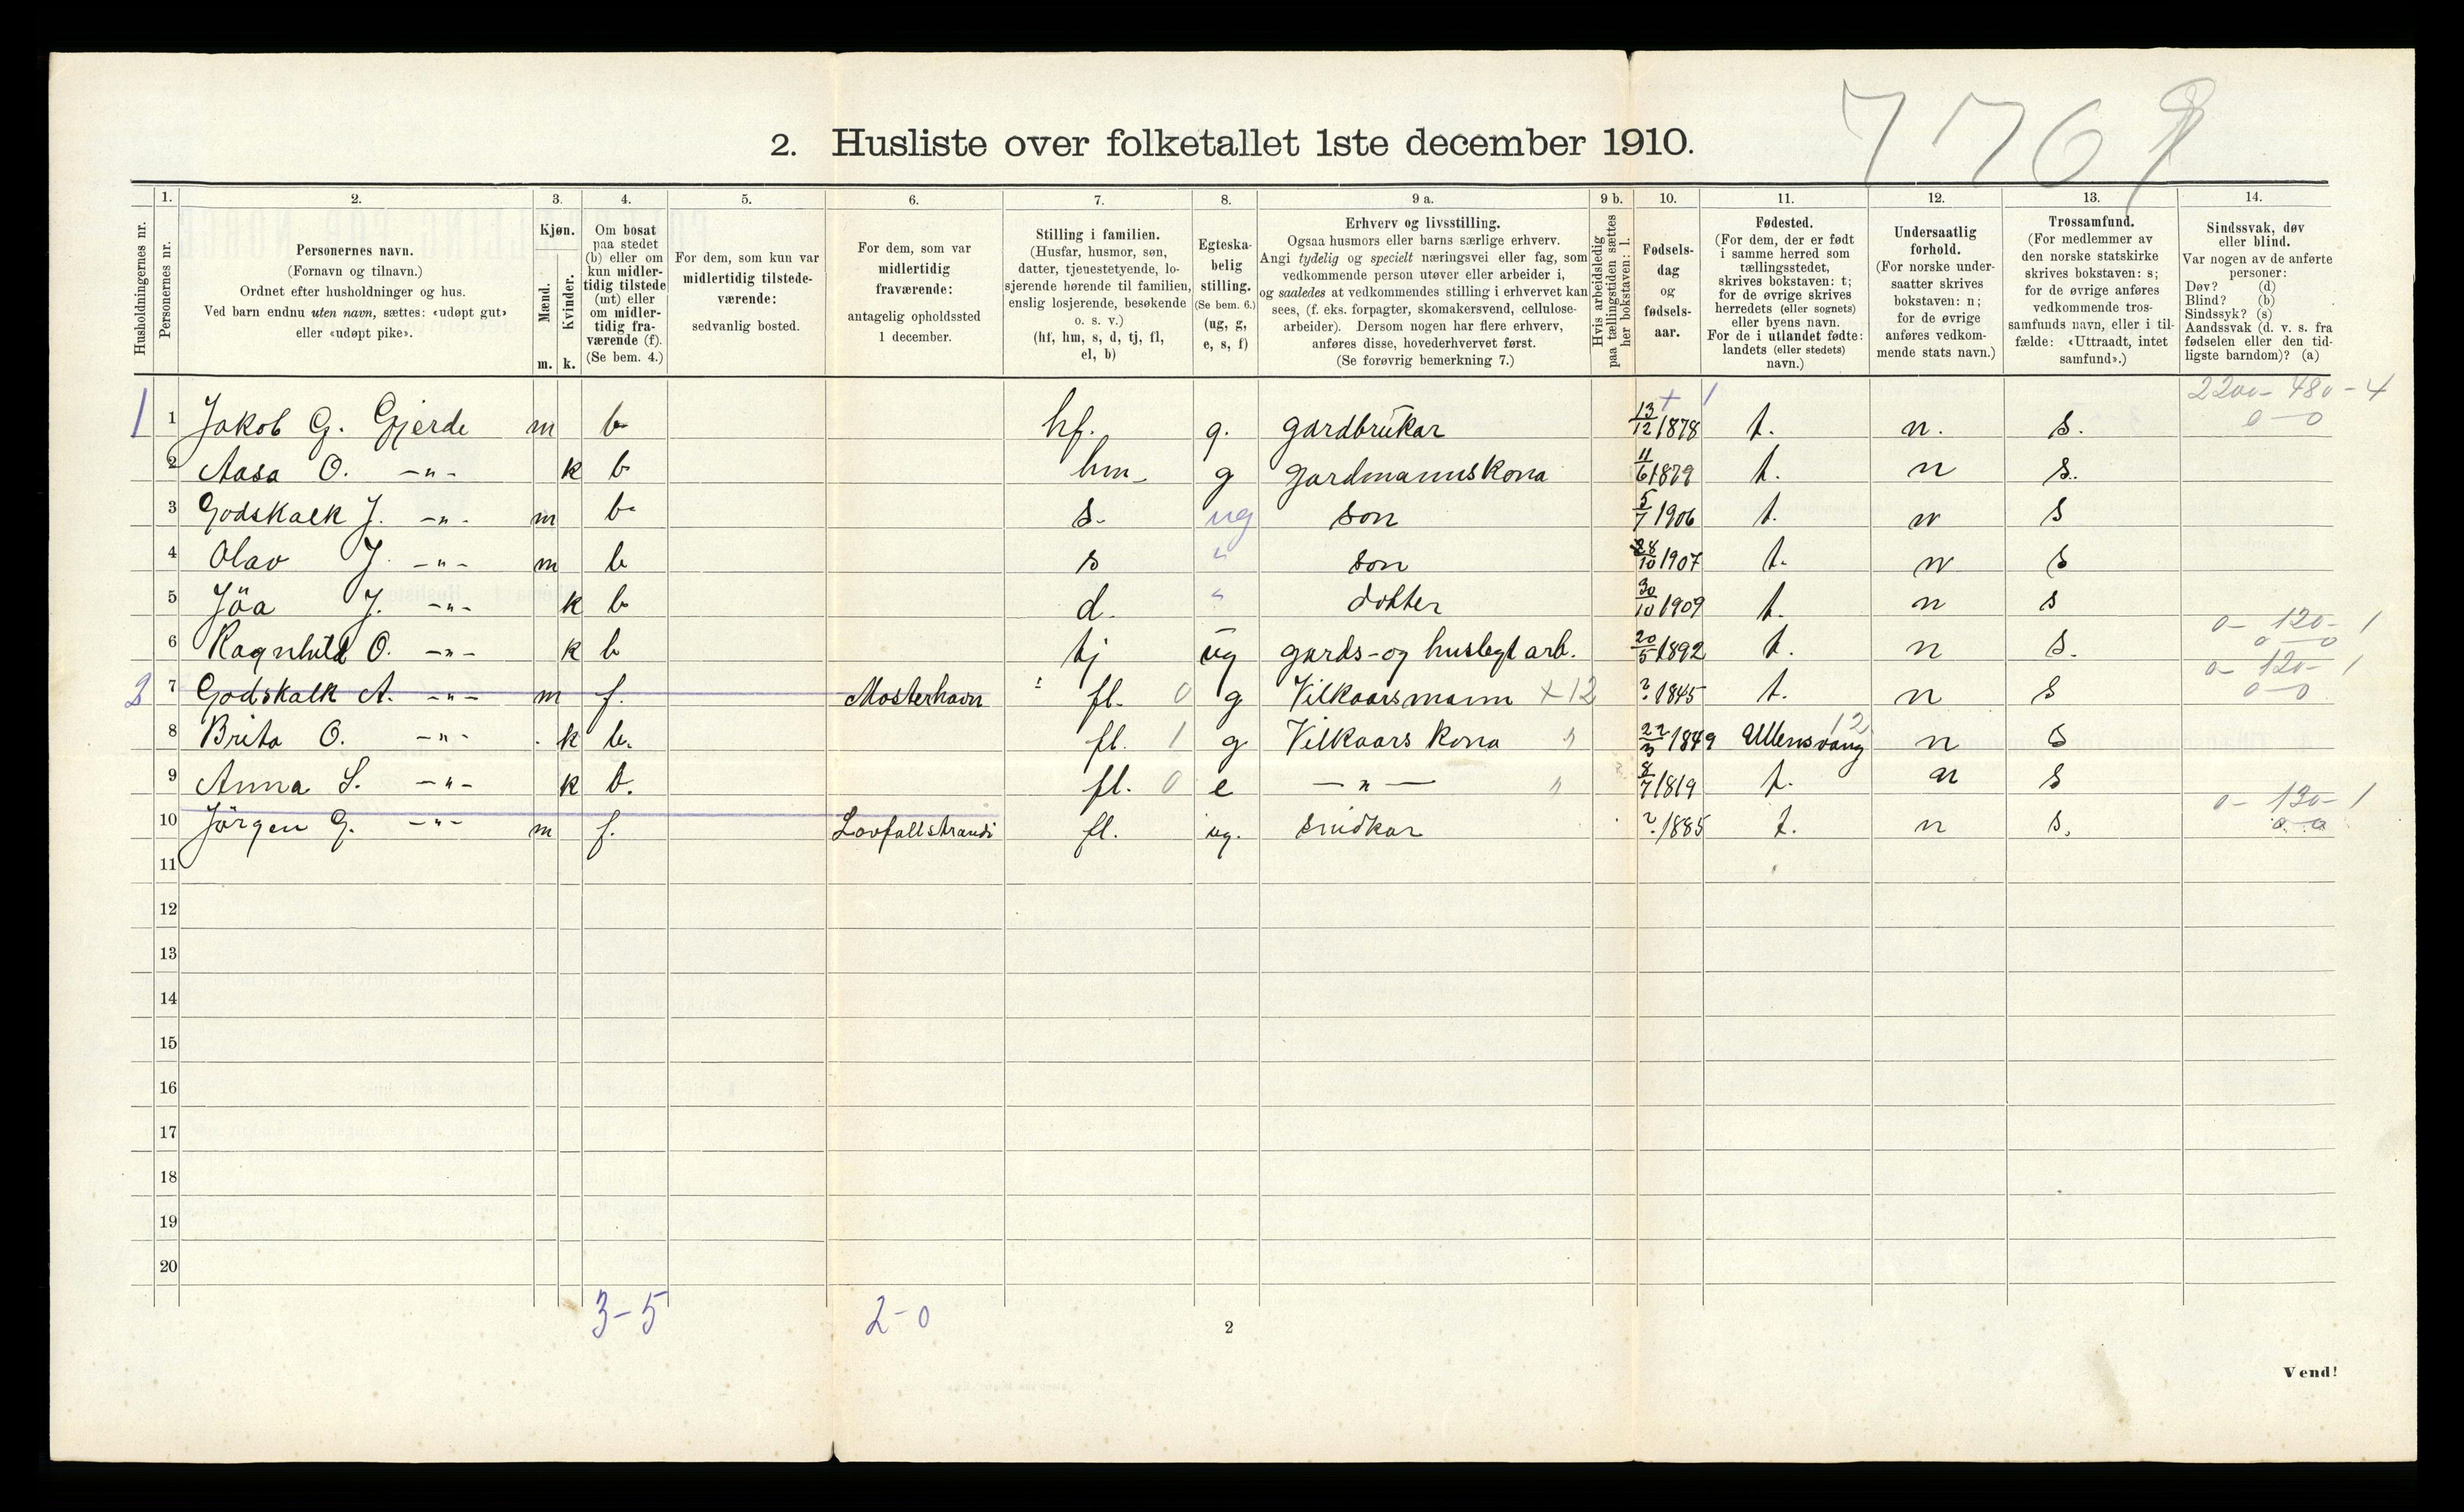 7 7 6 9
2. Husliste over folketallet 1ste december 1910.
Husholdningernes nr.
1. Personernes nr.
2. Personernes navn.
(Fornavn og tilnavn.)
Ordnet efter husholdninger og hus.
Ved barn endnu uten navn, sættes: «udøpt gut»
eller «udøpt pike».
3. Kjøn.
Mænd. Kvinder.
m. k.
4. Om bosat
paa stedet
(b) eller om
kun midler-
tidig tilstede
(mt) eller
om midler-
tidig fra-
værende (f).
(Se bem. 4.)
5. For dem, som kun var
midlertidig tilstede-
værende:
sedvanlig bosted.
6. For dem, som var
midlertidig
fraværende:
antagelig opholdssted
1 december.
7. Stilling i familien.
(Husfar, husmor, søn,
datter, tjenestetyende, lo-
sjerende hørende til familien,
enslig losjerende, besøkende
o. s. v.)
(hf, hm, s, d, tj, fl,
el, b)
8. Egteska-
belig
stilling.
(Se bem. 6.)
(ug, g,
e, s, f)
9 a. Erhverv og livsstilling.
Ogsaa husmors eller barns særlige erhverv.
Angi tydelig og specielt næringsvei eller fag, som
vedkommende person utøver eller arbeider i,
og saaledes at vedkommendes stilling i erhvervet kan
sees, (f. eks. forpagter, skomakersvend, cellulose-
arbeider). Dersom nogen har flere erhverv,
anføres disse, hovederhvervet først.
(Se forøvrig bemerkning 7.)
9 b. Hvis arbeidsledig
paa tællingstiden sættes
her bokstaven: l.
10. Fødsels-
dag
og
fødsels-
aar.
11. Fødested.
(For dem, der er født
i samme herred som
tællingsstedet,
skrives bokstaven: t;
for de øvrige skrives
herredets (eller sognets)
eller byens navn.
For de i utlandet fødte:
landets (eller stedets)
navn.)
12. Undersaatlig
forhold.
(For norske under-
saatter skrives
bokstaven: n;
for de øvrige
anføres vedkom-
mende stats navn.)
13. Trossamfund.
(For medlemmer av
den norske statskirke
skrives bokstaven: s;
for de øvrige anføres
vedkommende tros-
samfunds navn, eller i til-
fælde: «Uttraadt, intet
samfund».)
14. Sindssvak, døv
eller blind.
Var nogen av de anførte
personer:
Døv? (d)
Blind? (b)
Sindssyk? (s)
Aandssvak (d. v. s. fra
fødselen eller den tid-
ligste barndom)? (a)
2200 - 480 - 4
1 1 Jakob G. Gjerde m b hf. g. gardbrukar 13/12 1878 t. n. s. 0 - 0
2 Aasa O. -„- k b hm g gardmannskona 11/6 1879 t. n s.
3 Godskalk J. -„- m b s. ug son 5/7 1906 t. n s
4 Olav J. -„- m b s „ son 28/10 1907 t. n s
5 Jöa J. -„- k b d. „ dotter 30/10 1909 t. n s
0 - 120 - 1
6 Ragnhild O. -„- k b tj ug gards- og huslegt arb. 20/5 1892 t. n s. 0 - 0
0 - 120 - 1
2 7 Godskalk A. -„- m f. Mosterhavn fl. 0 g Vilkaarsmann + 12 ? 1845 t. n s 0 - 0
8 Brita O. -„- k b. fl. 1 g Vilkaars kona 22/3 1849 Ullensvang 12 n s
9 Anna S. -„- k b. fl. 0 e -„- 8/7 1819 t. n s
0 - 130 - 1
10 Jörgen G. -„- m f. Lovfallstrandi fl. ug. snidkar ? 1885 t. n s. 0 - 0
11
12
13
14
15
16
17
18
19
20
3 - 5 2 - 0
2
Vend!